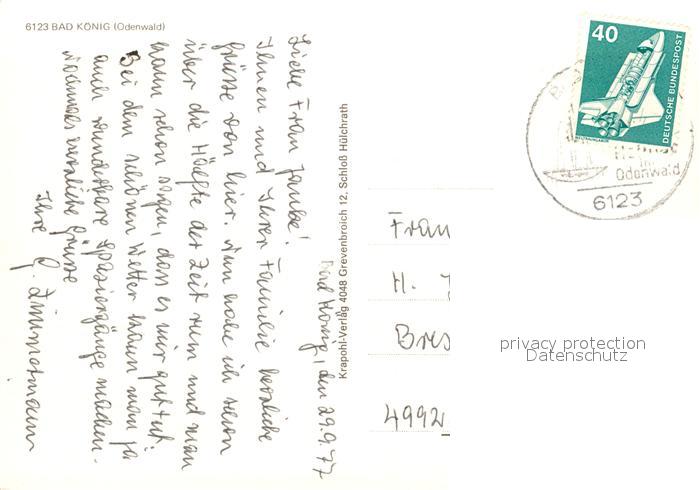 6123 BAD KÖNIG (Odenwald)
Bad König, den 29.9.77
Liebe Frau
Ihnen und Ihrer Familie herzliche
Grüsse von hier. Nun habe ich schon
über die Hälfte der Zeit rum und man
kann schon sagen, dass es mir gut tut.
Bei dem schönen Wetter kann man ja
auch wunderbare Spaziergänge machen.
Nochmals herzliche Grüsse
Ihre G. Zimmermann
Krapohl-Verlag 4048 Grevenbroich 12, Schloß Hülchrath
40
DEUTSCHE BUNDESPOST
Odenwald
6123
Frau
H.
Bres
4992
privacy protection
Datenschutz